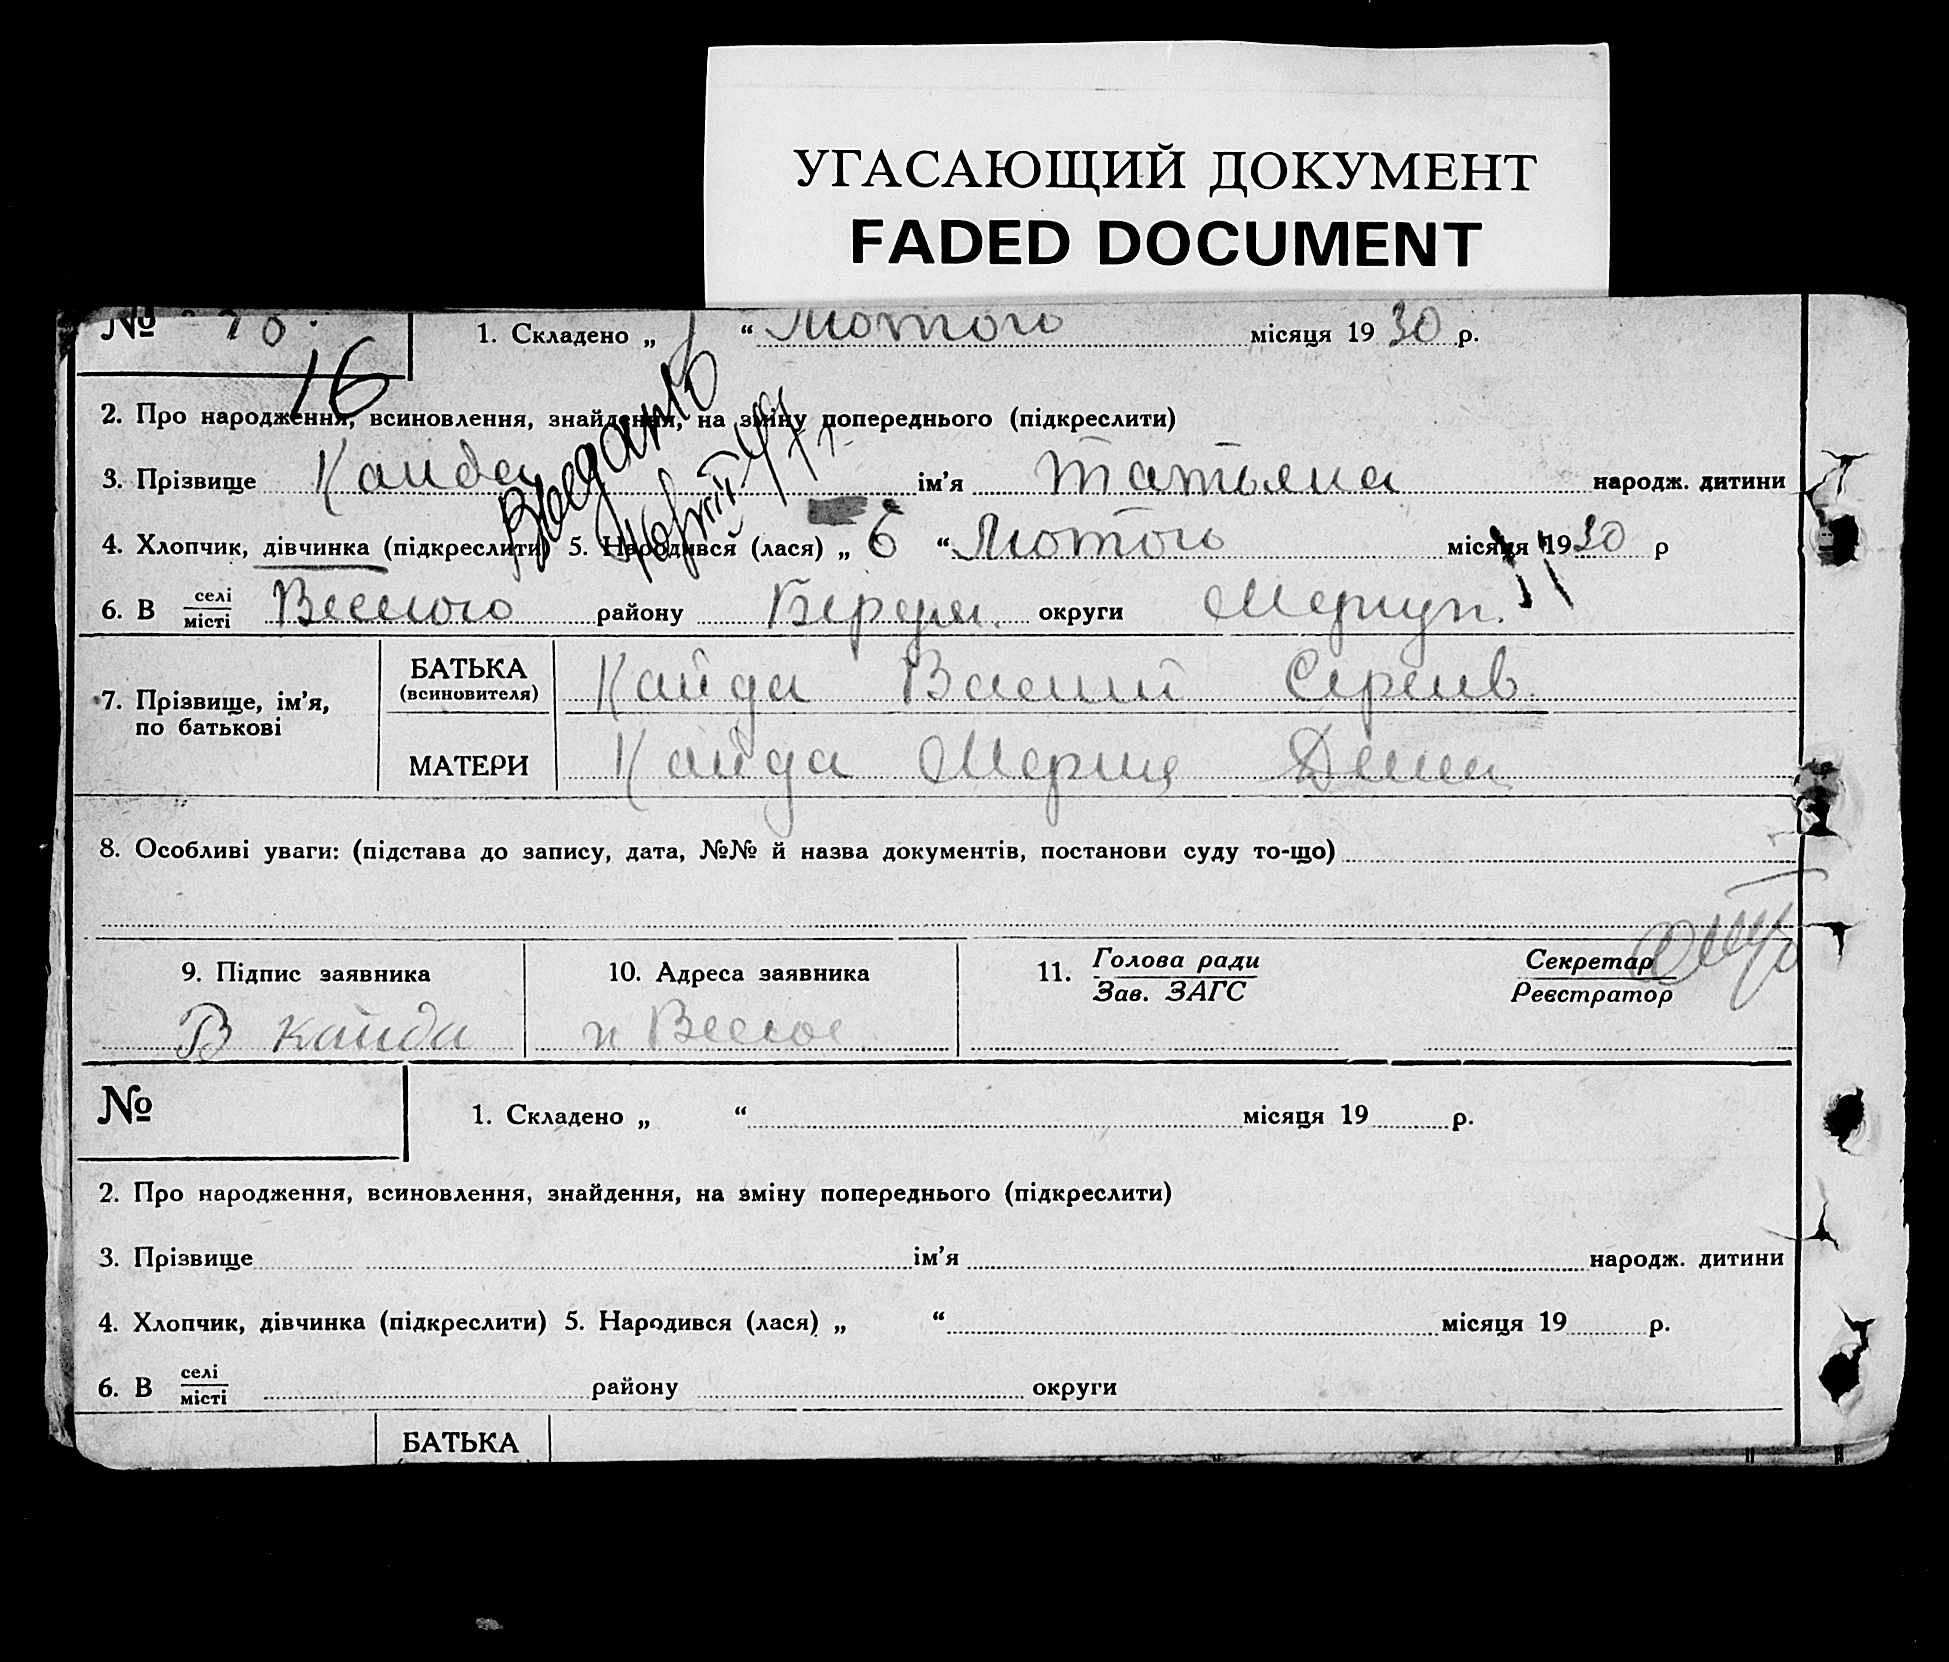 УГАСАЮЩИЙ ДОКУМЕНТ
FADED DOCUMENT
№ 70. 1. Складено „ “ Лютого місяця 19 30 р.
16
2. Про народження, всиновлення, знайдення, на зміну попереднього (підкреслити)
3. Прізвище Кайда ім’я Татьяна народж. дитини
4. Хлопчик, дівчинка (підкреслити) 5. Народився (лася) „ 6 “ Лютого місяця 19 30 р
6. В селі/місті Веселого району округи
7. Прізвище, ім’я, по батькові
БАТЬКА (всиновителя) Кайда
МАТЕРИ Кайда
8. Особливі уваги: (підстава до запису, дата, №№ й назва документів, постанови суду то-що)
9. Підпис заявника 10. Адреса заявника 11. Голова ради/Зав. ЗАГС Секретар/Реєстратор
В Кайда Веселое
№ 1. Складено „ “ місяця 19 р.
2. Про народження, всиновлення, знайдення, на зміну попереднього (підкреслити)
3. Прізвище ім’я народж. дитини
4. Хлопчик, дівчинка (підкреслити) 5. Народився (лася) „ “ місяця 19 р.
6. В селі/місті району округи
БАТЬКА